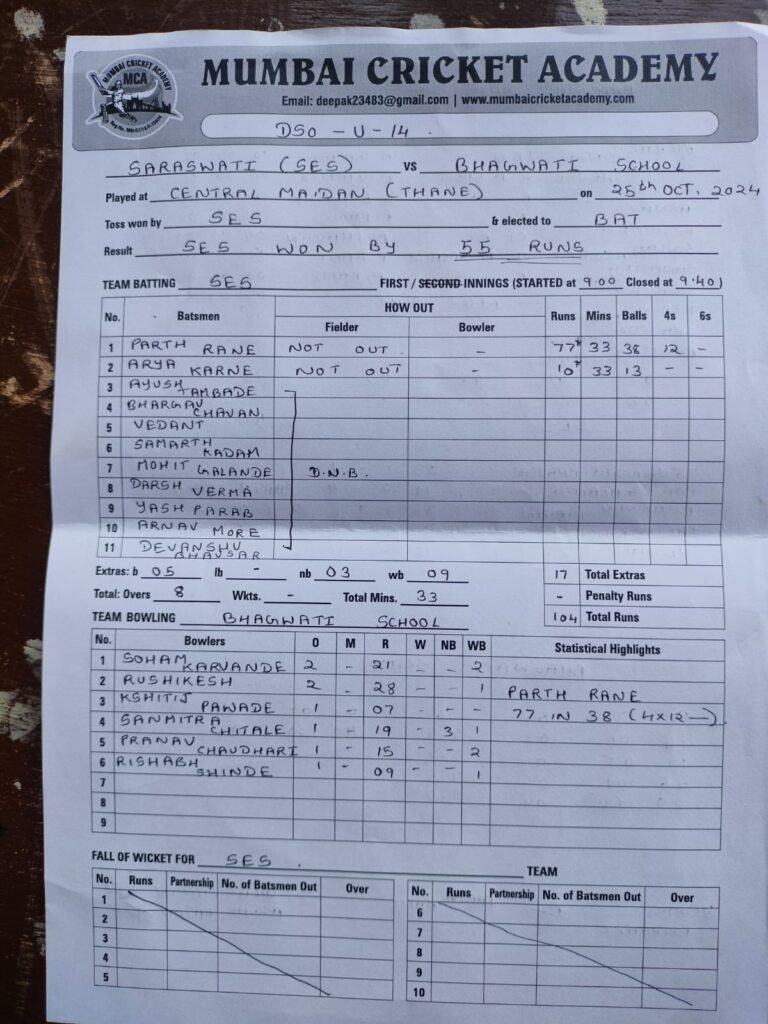 MUMBAI CRICKET ACADEMY
MCA
MUMBAI CRICKET ACADEMY
Email: deepak23483@gmail.com | www.mumbaicricketacademy.com
DSO - U - 14.
SARASWATI (SES) VS BHAGWATI SCHOOL
Played at CENTRAL MAIDAN (THANE) on 25th OCT, 2024
Toss won by SES & elected to BAT
Result SES WON BY 55 RUNS
TEAM BATTING SES FIRST / SECOND INNINGS (STARTED at 9.00 Closed at 9.40)
No. Batsmen HOW OUT Runs Mins Balls 4s 6s
Fielder Bowler
1 PARTH RANE NOT OUT - 77* 33 38 12 -
2 ARYA KARNE NOT OUT - 10* 33 13 - -
3 AYUSH TAMBADE
4 BHARGAV CHAVAN
5 VEDANT
6 SAMARTH KADAM
7 MOHIT GALANDE D.N.B.
8 DARSH VERMA
9 YASH PARAB
10 ARNAV MORE
11 DEVANSHU BHAVSAR
Extras: b 05 lb - nb 03 wb 09 17 Total Extras
Total: Overs 8 Wkts. - Total Mins. 33 - Penalty Runs
104 Total Runs
TEAM BOWLING BHAGWATI SCHOOL
No. Bowlers O M R W NB WB Statistical Highlights
1 SOHAM KARVANDE 2 - 21 - - 2
2 RUSHIKESH 2 - 28 - - 1 PARTH RANE
3 KSHITIJ PAWADE 1 - 07 - - - 77 IN 38 (4X12 —)
4 SANMITRA CHITALE 1 - 19 - 3 1
5 PRANAV CHAUDHARI 1 - 15 - - 2
6 RISHABH SHINDE 1 - 09 - - 1
7
8
9
FALL OF WICKET FOR SES. TEAM
No. Runs Partnership No. of Batsmen Out Over No. Runs Partnership No. of Batsmen Out Over
1 6
2 7
3 8
4 9
5 10